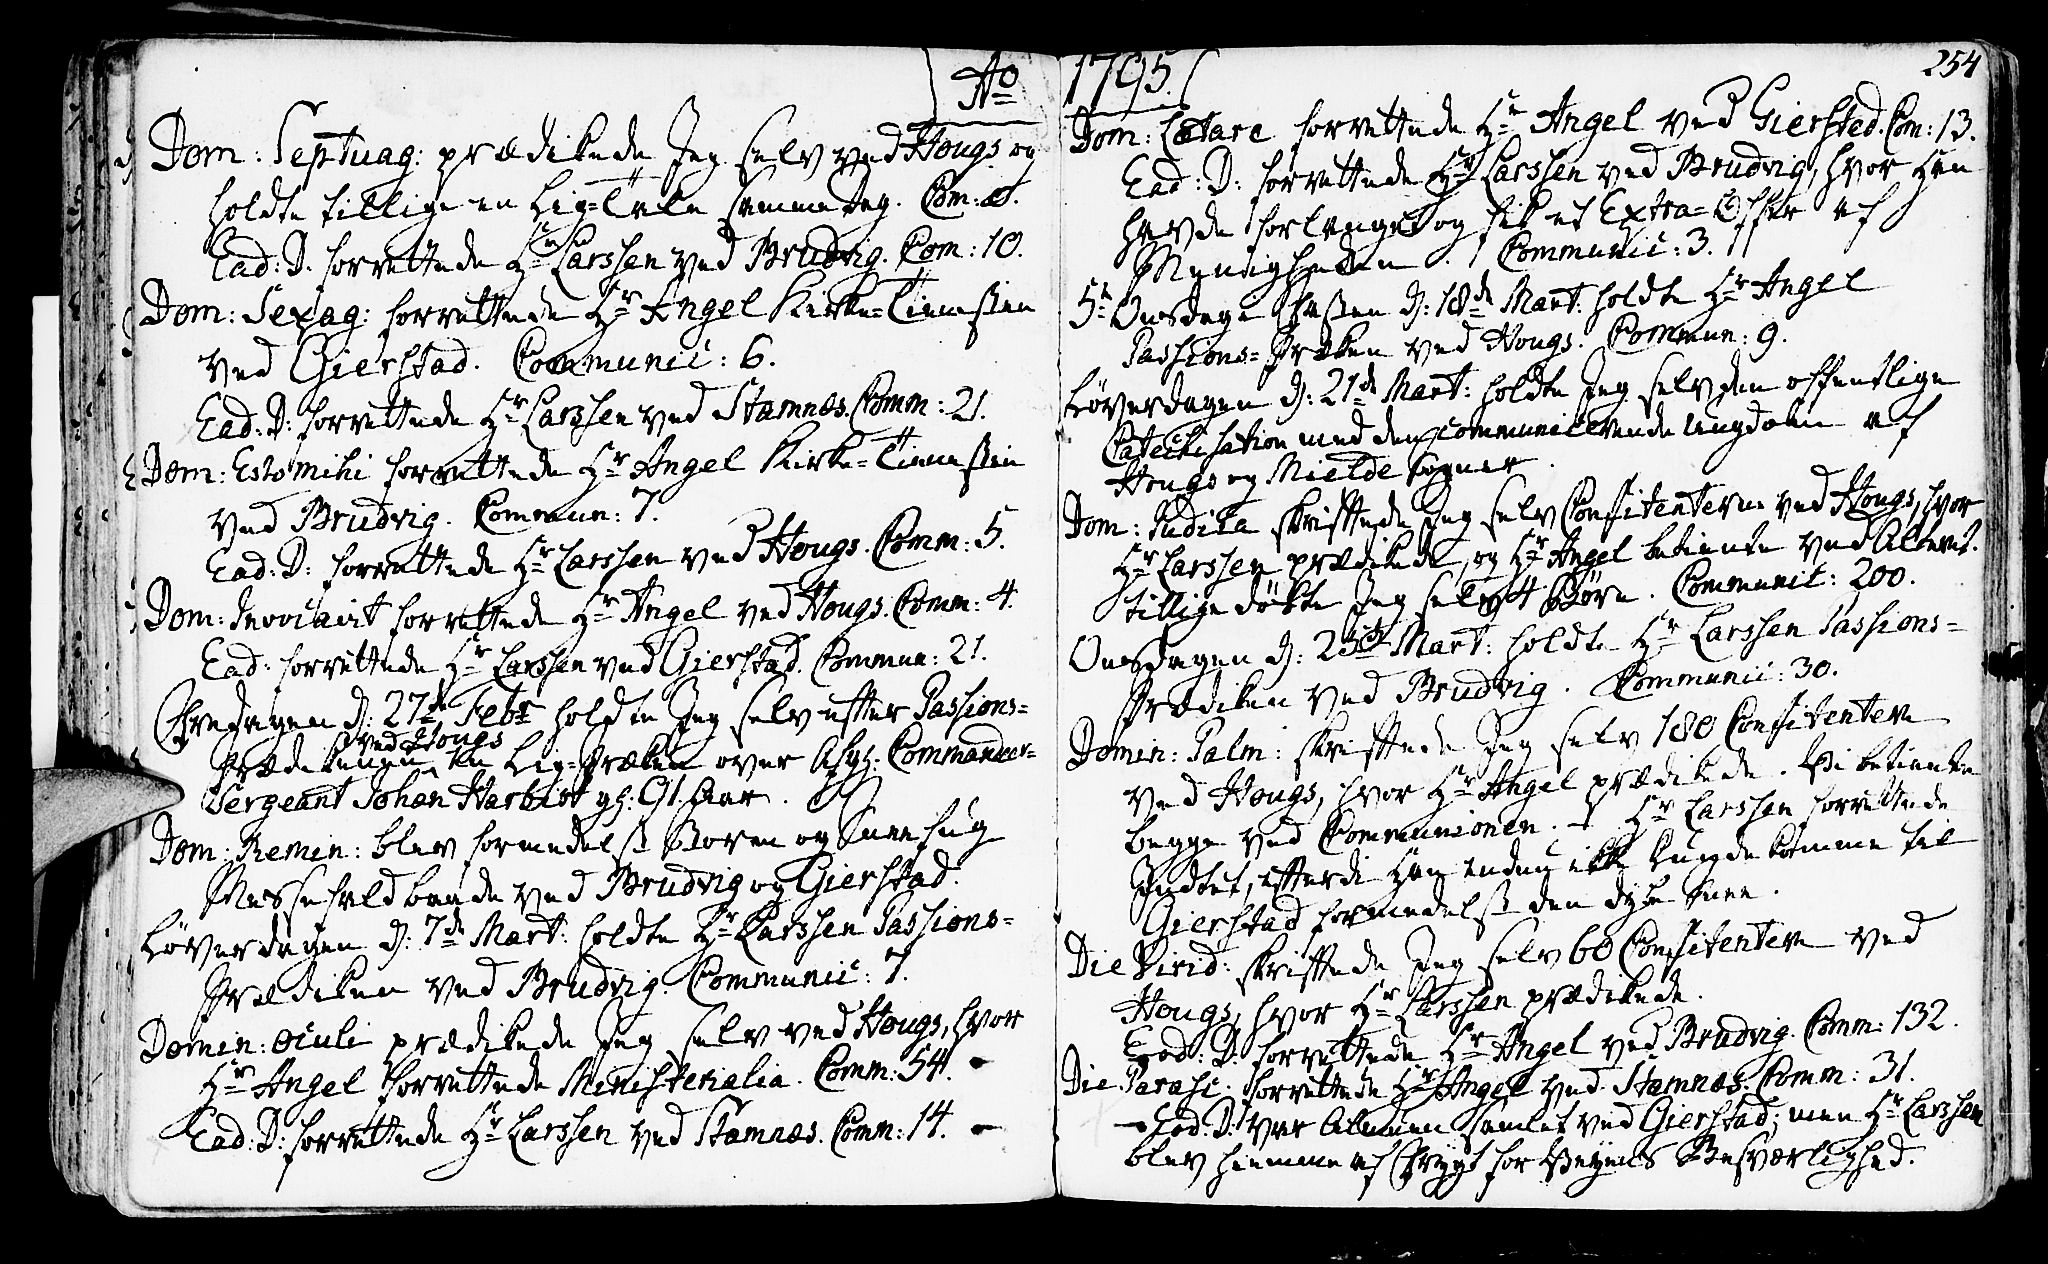 Ao 1795.
254
Dom: Septuag: prædikede Jeg selv ved Hougs og
holdte tillige en Liig-Tale samme Dag. Com: 0.
Ead: D. forrettede Hr Larssen ved Brudvig. Com: 10.
Dom: Sexag: forrettede Hr Angel Kirke-Tienesten
ved Gierstad. Communic: 6.
Ead: D: forrettede Hr Larssen ved Stamnæs. Comm: 21.
Dom: Estomihi forrettede Hr Angel Kirke-Tienesten
ved Brudvig. Commun: 7.
Ead: D: forrettede Hr Larssen ved Hougs. Comm: 5.
Dom: Invocavit forrettede Hr Angel ved Hougs. Comm: 4.
Ead: forrettede Hr Larssen ved Gierstad. Commun: 21.
Fredagen d: 27de Febr holdte Jeg selv efter Passions-
Prædikenen ved Hougs en Liig-Præken over Afg: Commandeer-
Sergeant Johan Harbist gl: 91. Aar.
Dom: Remin: blev formedelst Storm og Sneefug
Messefald baade ved Brudvig og Gierstad.
Løverdagen d: 7de Mart: holdte Hr Larssen Passions-
Prædiken ved Brudvig. Communic: 7.
Domin: Oculi prædikede Jeg selv ved Hougs, hvor
Hr Angel forrettede Ministerialia. Comm: 54.
Ead: D: forrettede Hr Larssen ved Stamnæs. Comm: 14.
Dom: Lætare forrettede Hr Angel ved Giersted. Com: 13.
Ead: D: forrettede Hr Larssen ved Brudvig, hvor Han
havde forlanget og fik et Extra-Offer af
Menigheden. Communic: 3.
5te Onsdag i Fasten d: 18de Mart: holdte Hr Angel
Passions-Præken ved Hougs. Commun: 9.
Løverdagen d: 21de Mart: holdte Jeg selv den offentlige
Catechisation med den communicerende Ungdom af
Hougs og Mielde Sogner.
Dom: Judica skriftede Jeg selv Confitenterne ved Hougs, hvor
Hr Larssen prædikede, og Hr Angel betiente ved Alteret.
tillige døbte Jeg selv 4 Børn. Communic: 200.
Onsdagen d: 25de Mart: holdte Hr Larssen Passions-
Prædiken ved Brudvig. Communic: 30.
Domin: Palm: skriftede Jeg selv 180 Confitentere
ved Hougs, hvor Hr Angel prædikede. Vi betiente
begge ved Communionen. Hr Larssen forrettede
Indtet, efterdi Han endnu ikke kunde komme til
Gierstad formedelst den dybe Snee.
Die Virid: skriftede Jeg selv 60 Confitentere ved
Hougs, hvor Hr Larssen prædikede.
Eod: D: forrettede Hr Angel ved Brudvig. Comm: 132.
Die Parasc: forrettede Hr Angel ved Stamnæs. Comm: 31.
Eod: D: var Almuen samlet ved Gierstad; men Hr Larssen
blev hiemme af Frygt for Veyens Besværlighed.